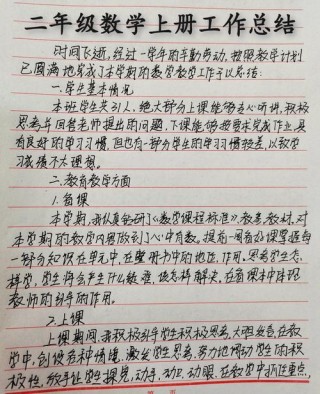 二年级数学上册工作总结
时间飞逝,经过一学年的辛勤劳动,按照教学计划
已圆满地完成了本学期的数学教学工作予以总结:
一.学生基本情况
本班学生共引人,绝大部分上课能够专心听讲,积极
思考并回答老师提出的问题,下课能够按要求完成作业,具
有良好的学习习惯,但也有一部分学生的学习习惯较差,以致学
习成绩不大理想。
二.教育教学方面
1.备课
本学期,我认真钻研了《数学课程标准》教差教材,对
本学期的教学内容做到了心中有数。提前一周备好课掌握每
一部分知识在单元中,在整册书中的地位、作用。思考学生怎
样学,学生将会产生什么疑难,该怎样解决。在备课本中体现
教师的引导的作用。
2.上课
上课期间,我积极引导学生积极思考,大胆发言,在教
学中,创设各种情境,激发学生思考,努力地调动学生的积
极性,放手让学生探究,动手、动口、动眼、在教学中抓住重点,